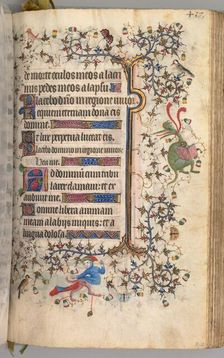 de morte oculos meos a lacri
mis pedes meos a lapsu
Placebo dño in regione uiuor
Requiem eternam dona eis
domine.
Et lux perpetua luceat eis
Placebo domino in regione uiuor
Ad dominū cum tribu
larer clamaui: et ex
audiuit me
Domine libera animam
meam a labijs iniquis: et a
lingua dolosa